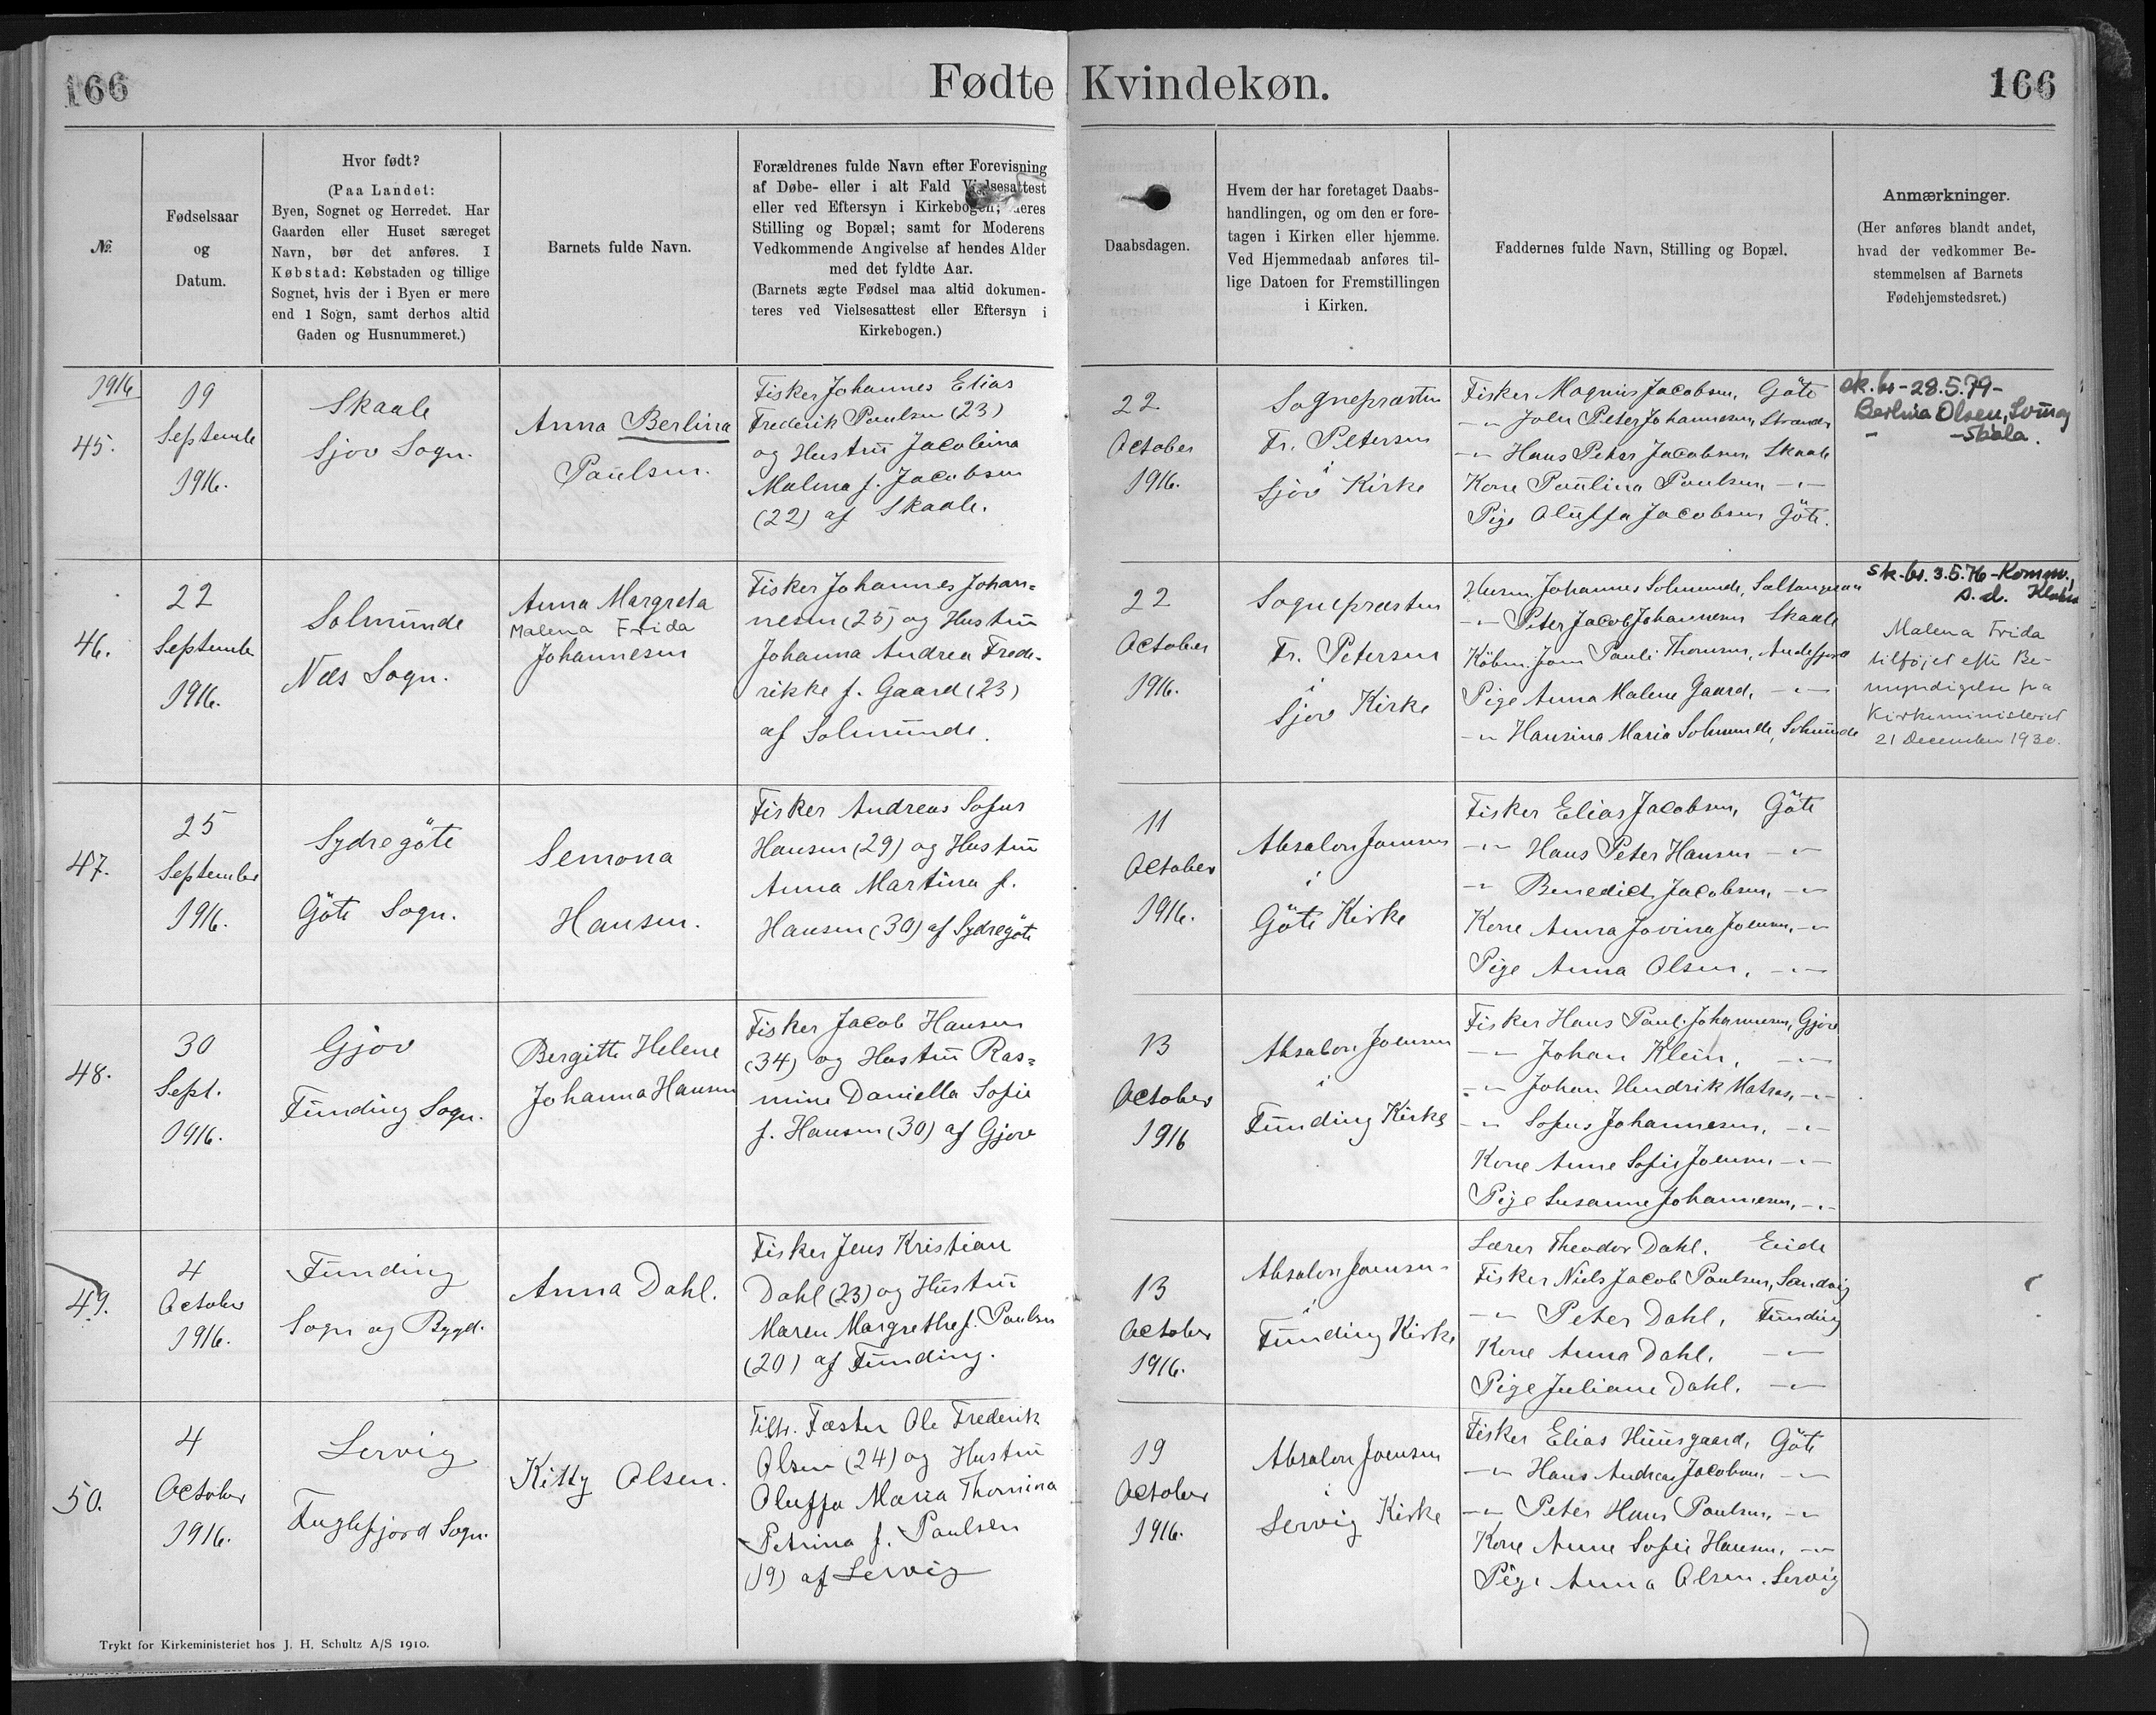 166
Fødte Kvindekøn.
166
№.
Fødselsaar
og
Datum.
Hvor født?
(Paa Landet:
Byen, Sognet og Herredet. Har
Gaarden eller Huset særeget
Navn, bør det anføres. I
Købstad: Købstaden og tillige
Sognet, hvis der i Byen er mere
end 1 Sogn, samt derhos altid
Gaden og Husnummeret.)
Barnets fulde Navn.
Forældrenes fulde Navn efter Forevisning
af Døbe- eller i alt Fald Vielsesattest
eller ved Eftersyn i Kirkebogen; deres
Stilling og Bopæl; samt for Moderens
Vedkommende Angivelse af hendes Alder
med det fyldte Aar.
(Barnets ægte Fødsel maa altid dokumen-
teres ved Vielsesattest eller Eftersyn i
Kirkebogen.)
Daabsdagen.
Hvem der har foretaget Daabs-
handlingen, og om den er fore-
tagen i Kirken eller hjemme.
Ved Hjemmedaab anføres til-
lige Datoen for Fremstillingen
i Kirken.
Faddernes fulde Navn, Stilling og Bopæl.
Anmærkninger.
(Her anføres blandt andet,
hvad der vedkommer Be-
stemmelsen af Barnets
Fødehjemstedsret.)
1916
45.
19
September
1916.
Skaale
Sjov Sogn.
Anna Berlina
Paulsen.
Fisker Johannes Elias
Frederik Paulsen (23)
og Hustru Jacobina
Malena f. Jacobsen
(22) af Skaale.
22
October
1916.
Sognepræsten
Fr. Petersen
i
Sjov Kirke
Fisker Magnus Jacobsen, Göte
-"- Peter Johannesen, Strander
-"- Hans Peter Jacobsen Skaale
Kone Paulina Paulsen -"-
Pige Oluffa Jacobsen Göte.
sk.br-28.5.79-
Berlina Olsen,
-Skála.
46.
22
September
1916.
Solmunde
Næs Sogn.
Anna Margreta
Malena Frida
Johannesen
Fisker Johannes Johan=
nesen (25) og Hustru
Johanna Andrea Frede-
rikke f. Gaard (23)
af Solmunde.
22
October
1916.
Sognepræsten
Fr. Petersen
i
Sjov Kirke
Husm. Johannes Solmunde, Saltangeraa
-"- Peter Jacob Johannesen Skaale
Købm. Joen Pauli Thomsen, Andefjord
Pige Anna Malene Gaard, -"-
-"- Hansina Maria Solmunde, Solmunde
sk-br. 3.5.76-Komm.,
Malena Frida
tilføjet efter Be-
myndigelse fra
Kirkeministeriet
21 December 1930.
47.
25
September
1916.
Sydregöte
Göte Sogn.
Semona
Hansen.
Fisker Andreas Sofus
Hansen (29) og Hustru
Anna Martina f.
Hansen (30) af Sydregöte
11
October
1916.
Absalon Joensen
i
Göte Kirke
Fisker Elias Jacobsen, Göte
-"- Hans Peter Hansen -"-
-"- Benedict Jacobsen, -"-
Kone Anna Jovina Joensen, -"-
Pige Anna Olsen, -"-
48.
30
Sept.
1916.
Gjov
Funding Sogn.
Bergitte Helene
Johanna Hansen
Fisker Jacob Hansen
(34) og Hustru Ras=
mine Daniella Sofie
f. Hansen (30) af Gjov
13
October
1916
Absalon Joensen
i
Funding Kirke
Fisker Hans Paul. Johannesen, Gjov
-"- Johan Klein, -"-
-"- Johan Hendrik Matras, -"-
-"- Sofus Johannesen, -"-
Kone Anne Sofie Joensen -"-
Pige Susanne Johannesen, -"-
49.
4
October
1916.
Funding
Sogn og Bygd.
Anna Dahl.
Fisker Jens Kristian
Dahl (23) og Hustru
Maren Margrethe f. Paulsen
(20) af Funding.
13
October
1916.
Absalon Joensen
i
Funding Kirke
Lærer Theodor Dahl. Eide
Fisker Niels Jacob Paulsen, Sandvig
-"- Peter Dahl, Funding
Kone Anna Dahl. -"-
Pige Juliane Dahl. -"-
50.
4
October
1916.
Lervig
Fuglefjord Sogn.
Kitty Olsen.
Fæster Ole Frederik
Olsen (24) og Hustru
Oluffa Maria Thomina
Petrina f. Paulsen
(19) af Lervig
19
October
1916.
Absalon Joensen
i
Lervig Kirke
Fisker Elias Huusgaard, Göte
-"- Hans Andreas Jacobsen -"-
-"- Peter Hans Paulsen, -"-
Kone Anne Sofie Hansen, -"-
Pige Anna Olsen. Lervig
Trykt for Kirkeministeriet hos J. H. Schultz A/S 1910.